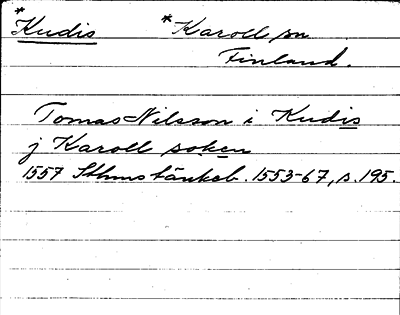 *Kudis *Karoll sn
Finland.
Tomas Nilsson i Kudis
j Karoll soken
1557 Sthms tänkeb. 1553-67, s. 195.